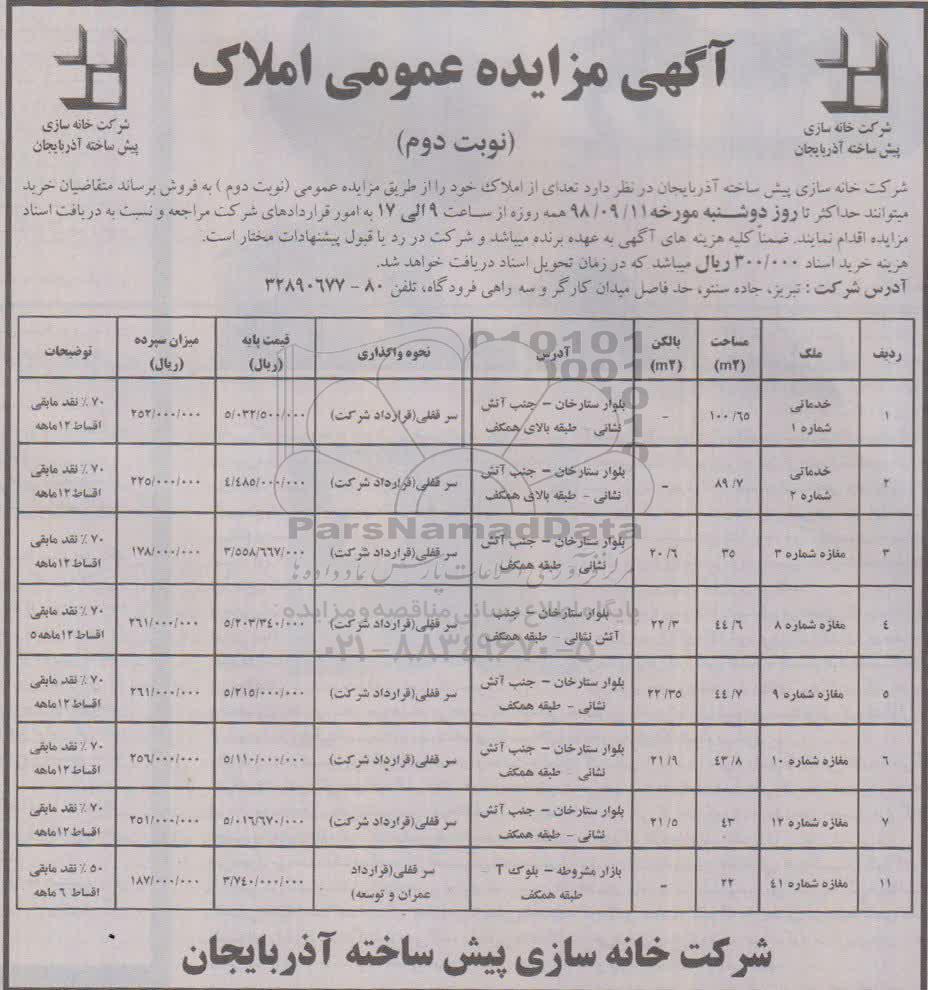 آگهی مزایده عمومی املاک
(نوبت دوم)
شرکت خانه سازی
پیش ساخته آذربایجان
شرکت خانه سازی
پیش ساخته آذربایجان
شرکت خانه سازی پیش ساخته آذربایجان در نظر دارد تعدای از املاک خود را از طریق مزایده عمومی (نوبت دوم ) به فروش برساند متقاضیان خرید
میتوانند حداکثر تا روز دوشنبه مورخه ۹۸/۰۹/۱۱ همه روزه از ساعت ۹ الی ۱۷ به امور قراردادهای شرکت مراجعه و نسبت به دریافت اسناد
مزایده اقدام نمایند. ضمناً کلیه هزینه های آگهی به عهده برنده میباشد و شرکت در رد یا قبول پیشنهادات مختار است.
هزینه خرید اسناد ۳۰۰/۰۰۰ ریال میباشد که در زمان تحویل اسناد دریافت خواهد شد.
آدرس شرکت : تبریز، جاده سنتو، حد فاصل میدان کارگر و سه راهی فرودگاه، تلفن ۸۰ - ۳۲۸۹۰۶۷۷
ردیف ملک مساحت (m۲) بالکن (m۲) آدرس نحوه واگذاری قیمت پایه (ریال) میزان سپرده (ریال) توضیحات
۱ خدماتی شماره ۱ ۱۰۰/۶۵ - بلوار ستارخان – جنب آتش نشانی - طبقه بالای همکف سر قفلی(قرارداد شرکت) ۵/۰۳۲/۵۰۰/۰۰۰ ۲۵۲/۰۰۰/۰۰۰ ۷۰٪ نقد مابقی اقساط ۱۲ماهه
۲ خدماتی شماره ۲ ۸۹/۷ - بلوار ستارخان – جنب آتش نشانی - طبقه بالای همکف سر قفلی(قرارداد شرکت) ۴/۴۸۵/۰۰۰/۰۰۰ ۲۲۵/۰۰۰/۰۰۰ ۷۰٪ نقد مابقی اقساط ۱۲ماهه
۳ مغازه شماره ۳ ۳۵ ۲۰/۶ بلوار ستارخان – جنب آتش نشانی - طبقه همکف سر قفلی(قرارداد شرکت) ۳/۵۵۸/۶۶۷/۰۰۰ ۱۷۸/۰۰۰/۰۰۰ ۷۰٪ نقد مابقی اقساط ۱۲ماهه
۴ مغازه شماره ۸ ۴۴/۶ ۲۲/۳ بلوار ستارخان – جنب آتش نشانی - طبقه همکف سر قفلی(قرارداد شرکت) ۵/۲۰۳/۳۴۰/۰۰۰ ۲۶۱/۰۰۰/۰۰۰ ۷۰٪ نقد مابقی اقساط ۱۲ماهه۵
۵ مغازه شماره ۹ ۴۴/۷ ۲۲/۳۵ بلوار ستارخان – جنب آتش نشانی - طبقه همکف سر قفلی(قرارداد شرکت) ۵/۲۱۵/۰۰۰/۰۰۰ ۲۶۱/۰۰۰/۰۰۰ ۷۰٪ نقد مابقی اقساط ۱۲ماهه
۶ مغازه شماره ۱۰ ۴۳/۸ ۲۱/۹ بلوار ستارخان – جنب آتش نشانی - طبقه همکف سر قفلی(قرارداد شرکت) ۵/۱۱۰/۰۰۰/۰۰۰ ۲۵۶/۰۰۰/۰۰۰ ۷۰٪ نقد مابقی اقساط ۱۲ماهه
۷ مغازه شماره ۱۲ ۴۳ ۲۱/۵ بلوار ستارخان – جنب آتش نشانی - طبقه همکف سر قفلی(قرارداد شرکت) ۵/۰۱۶/۶۷۰/۰۰۰ ۲۵۱/۰۰۰/۰۰۰ ۷۰٪ نقد مابقی اقساط ۱۲ماهه
۱۱ مغازه شماره ۴۱ ۲۲ - بازار مشروطه – بلوک T - طبقه همکف سر قفلی(قرارداد عمران و توسعه) ۳/۷۴۰/۰۰۰/۰۰۰ ۱۸۷/۰۰۰/۰۰۰ ۵۰٪ نقد مابقی اقساط ۶ ماهه
ParsNamadData
مرکز فرآوری اطلاعات پارس نماد داده ها
پایگاه اطلاع رسانی مناقصه و مزایده
۰۲۱-۸۸۳۴۹۶۷۰-۵
شرکت خانه سازی پیش ساخته آذربایجان